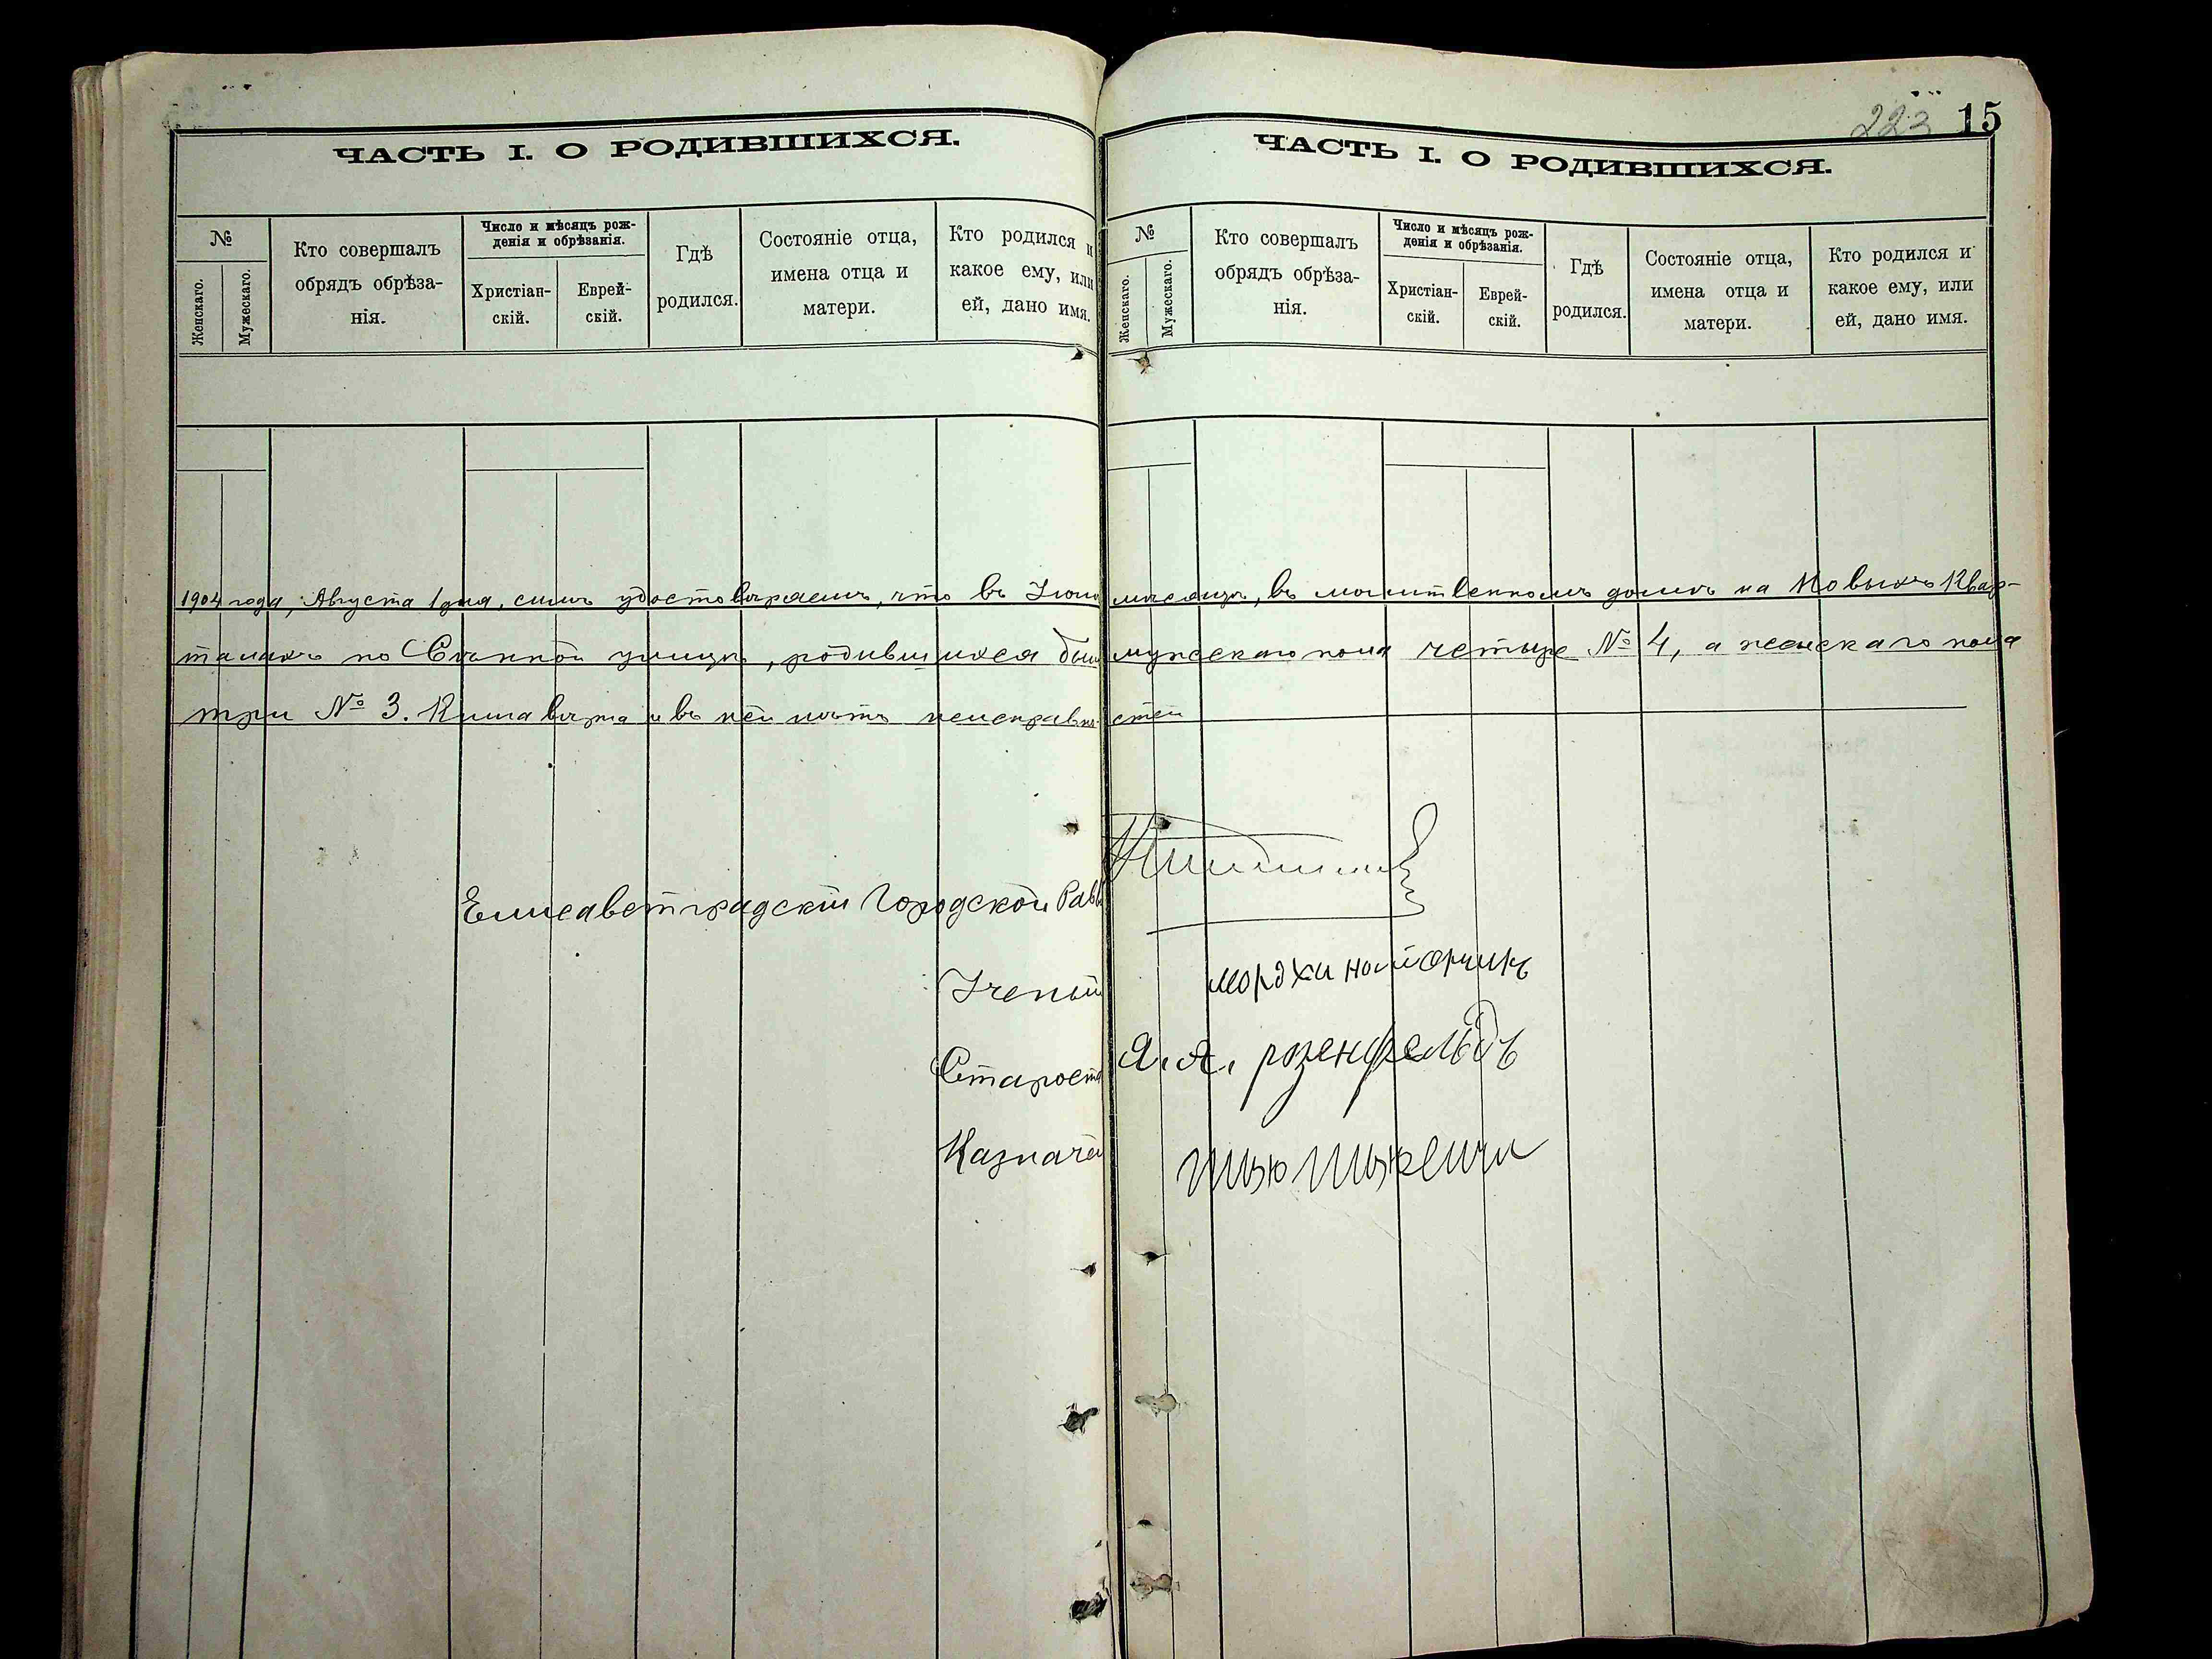 223 15
ЧАСТЬ I. О РОДИВШИХСЯ.
№
Женскаго.
Мужескаго.
Кто совершалъ
обрядъ обрѣза-
нія.
Число и мѣсяцъ рож-
денія и обрѣзанія.
Христіан-
скій.
Еврей-
скій.
Гдѣ
родился.
Состояніе отца,
имена отца и
матери.
Кто родился и
какое ему, или
ей, дано имя.
ЧАСТЬ I. О РОДИВШИХСЯ.
№
Женскаго.
Мужескаго.
Кто совершалъ
обрядъ обрѣза-
нія.
Число и мѣсяцъ рож-
денія и обрѣзанія.
Христіан-
скій.
Еврей-
скій.
Гдѣ
родился.
Состояніе отца,
имена отца и
матери.
Кто родился и
какое ему, или
ей, дано имя.
1904 года, Августа 1 дня, симъ удостовѣряемъ, что въ мѣсяцѣ, въ молитвенномъ домѣ на Новыхъ Квар-
талахъ по Сѣнной улицѣ, родившихся был мужескаго пола четыре № 4, а женскаго пола
три № 3. Книга вѣрна и въ ней нѣтъ неисправностей
Елисаветградскій Городской Равв
Ученый мордхи
Староста Я. А. розенфельдъ
Казначей